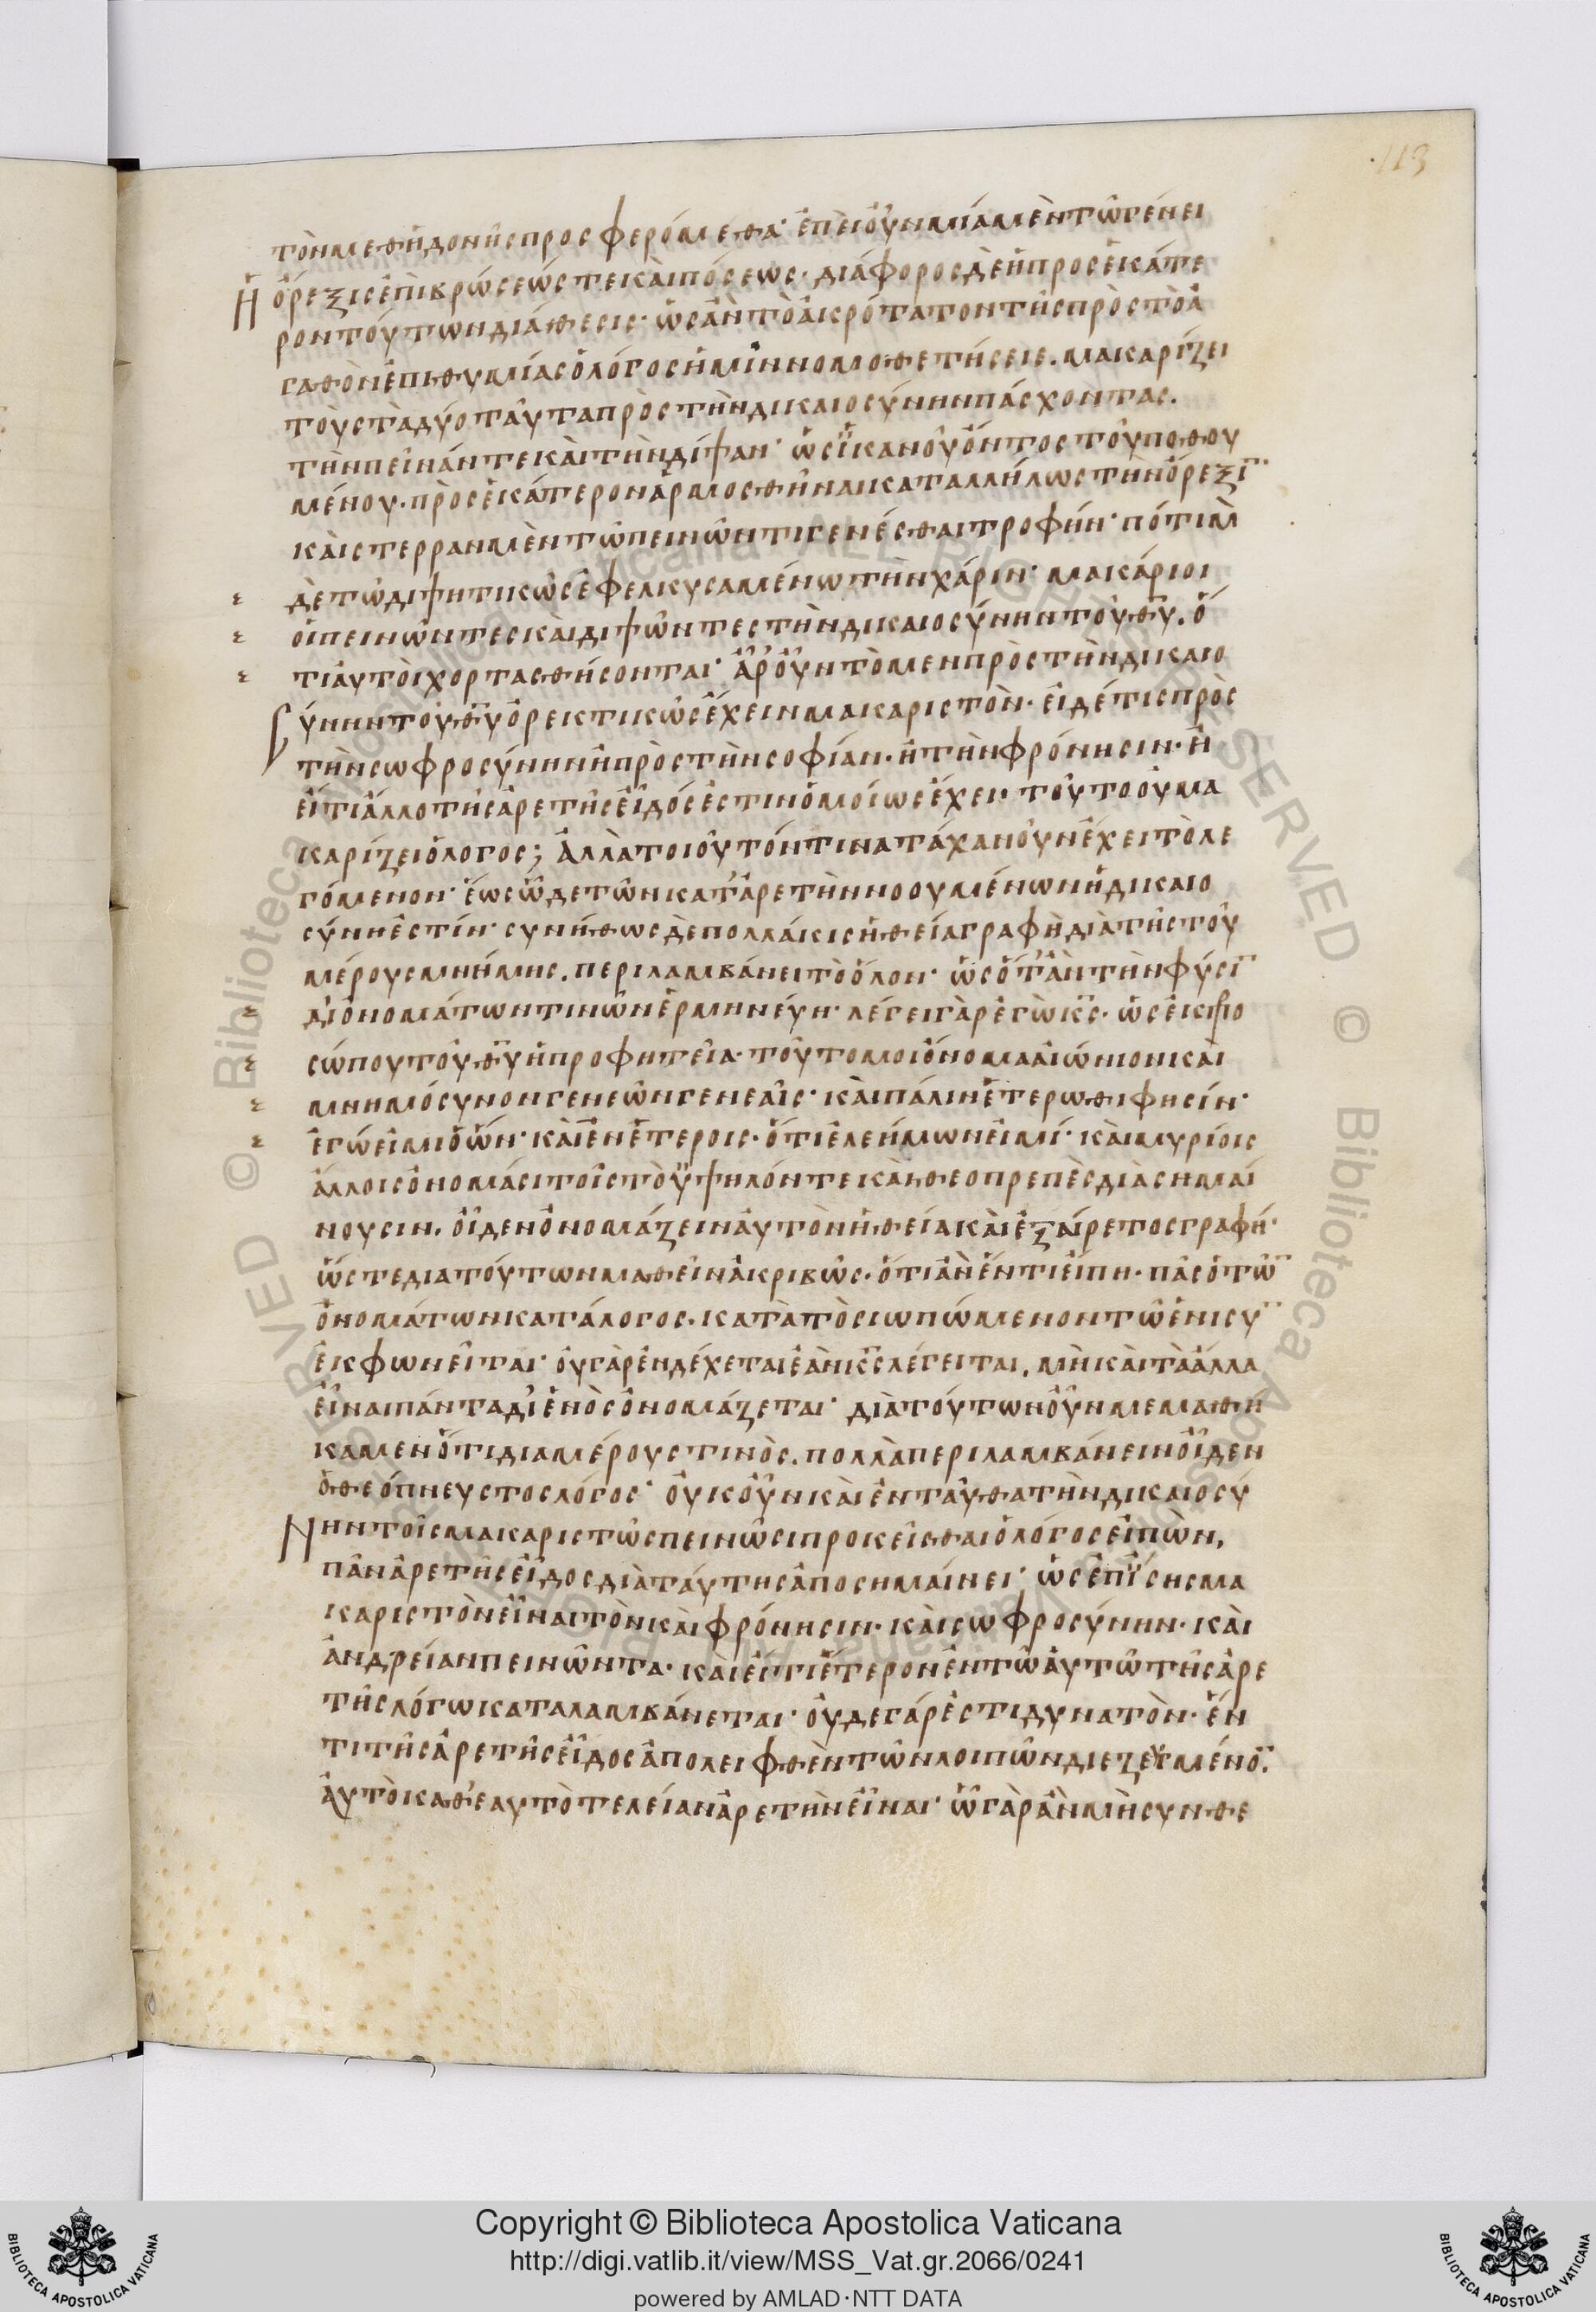 113
τὸν μεθ ἡδονῆς προσφερόμεθα· ἐπεὶ οὖν μία μὲν τῶ γένει
ἡ ὄρεξις ἐπὶ βρώσεώς τε καὶ πόσεως· διάφορος δὲ ἡ πρὸς ἑκάτε
ρον τούτων διάθεσις· ὡς ἂν τὸ ἀκρότατον τῆς πρὸς τὸ ἀ
γαθὸν ἐπιθυμίας ὁ λόγος ἡμῖν νομοθετήσειε. μακαρίζει
τοὺς τὰ δύο ταῦτα πρὸς τὴν δικαιοσύνην πάσχοντας.
τὴν πεῖνάν τε καὶ τὴν δίψαν· ὡς ἱκανοῦ ὄντος τοῦ ποθου
μένου. πρὸς ἑκάτερον ἁρμοσθῆναι καταλλήλως τὴν ὄρεξι̅
καὶ στερρὰν μὲν τῶ πεινῶντι γενέσθαι τροφήν· πότιμ
δὲ τῶ διψητικῶς ἐφελκυσαμένω τὴν χάριν· μακάριοι
οἱ πεινῶντες καὶ διψῶντες τὴν δικαιοσύνην τοῦ θ̅υ̅. ὅ
τι αὐτοὶ χορτασθήσονται· ἆρ' οὖν τὸ μὲν πρὸς τὴν δικαιο
σύνην τοῦ θ̅υ̅ ὀρεκτικῶς ἔχειν μακαριστὸν· εἰ δέ τις πρὸς
τὴν σωφροσύνην ἢ πρὸς τὴν σοφίαν. ἢ τὴν φρόνησιν· ἢ
εἴ τι ἄλλο τῆς ἀρετῆς εἶδός ἐστιν ὁμοίως ἔχει· τοῦτο οὐ μα
καρίζει ὁ λόγος; Ἀλλὰ τοιοῦτόν τινα τάχα νοῦν ἔχει τὸ λε
γόμενον· ἕως ὧδε τῶν κατ' ἀρετὴν νοουμένων ἡ δικαιο
σύνη ἐστίν· συνήθως δὲ πολλάκις ἡ θεία γραφὴ διὰ τῆς τοῦ
μέρους μνήμης. περιλαμβάνει τὸ ὅλον· ὡς ὅτ' ἂν τὴν φύσι̅
δι ὀνομάτων τινῶν ἑρμηνεύη· λέγει γὰρ ἐγὼ κ̅ς̅· ὡς ἐκ προ
σώπου τοῦ θ̅υ̅ ἡ προφητεία· τοῦτο μοι ὄνομα αἰώνιον καὶ
μνημόσυνον γενεῶν γενεαῖς· καὶ πάλιν ἑτέρωθι φησίν·
ἐγώ εἰμι ὁ ὤν· καὶ ἐν ἑτέροις· ὅτι ἐλεήμων εἰμί· καὶ μυρίοις
ἄλλοις ὀνόμασι τοῖς τὸ ὑψηλόν τε καὶ θεοπρεπὲς διασημαί
νουσιν. οἶδεν ὀνομάζειν αὐτὸν ἡ θεία καὶ ἐξαίρετος γραφή·
ὥστε διὰ τούτων μαθεῖν ἀκριβῶς. ὅτι ἂν ἕν τι εἴπη. πᾶς ὁ τῶ̅
ὀνομάτων κατάλογος. κατὰ τὸ σιωπώμενον τῶ ἑνὶ συ̅
ἐκφωνεῖται· οὐ γὰρ ἐνδέχεται ἐὰν κ̅ς̅ λέγειται. μὴ καὶ τὰ ἄλλα
εἶναι πάντα δι' ἑνὸς ὀνομάζεται· διὰ τούτων οὖν μεμαθή
καμεν ὅτι διὰ μέρους τινὸς. πολλὰ περιλαμβάνειν οἶδεν
ὁ θεόπνευστος λόγος· οὐκοῦν καὶ ἐνταῦθα τὴν δικαιοσύ
νην τοῖς μακαριστῶς πεινῶσι προκεῖσθαι ὁ λόγος εἰπὼν,
πᾶν ἀρετῆς εἶδος διὰ ταύτης ἀποσημαίνει· ὡς ἐπίσης μα
καριστὸν εἶναι τὸν καὶ φρόνησιν· καὶ σωφροσύνην· καὶ
ἀνδρείαν πεινῶντα· καὶ εἴ τι ἕτερον ἐν τῶ αὐτῶ τῆς ἀρε
τῆς λόγω καταλαμβάνεται· οὐδε γάρ ἐστι δυνατὸν· ἕν
τι τῆς ἀρετῆς εἶδος ἀπολειφθὲν τῶν λοιπῶν διεζευγμένο̅.
αὐτὸ καθ' ἑαυτὸ τελείαν ἀρετὴν εἶναι· ὧ γὰρ ἂν μὴ συνθε
Copyright © Biblioteca Apostolica Vaticana
http://digi.vatlib.it/view/MSS_Vat.gr.2066/0241
powered by AMLAD·NTT DATA
BIBLIOTECA APOSTOLICA VATICANA
BIBLIOTECA APOSTOLICA VATICANA